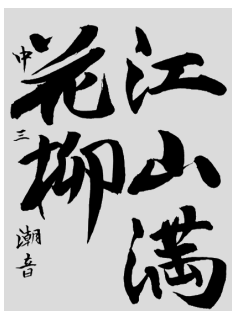 江山満
花柳
中三 潮音